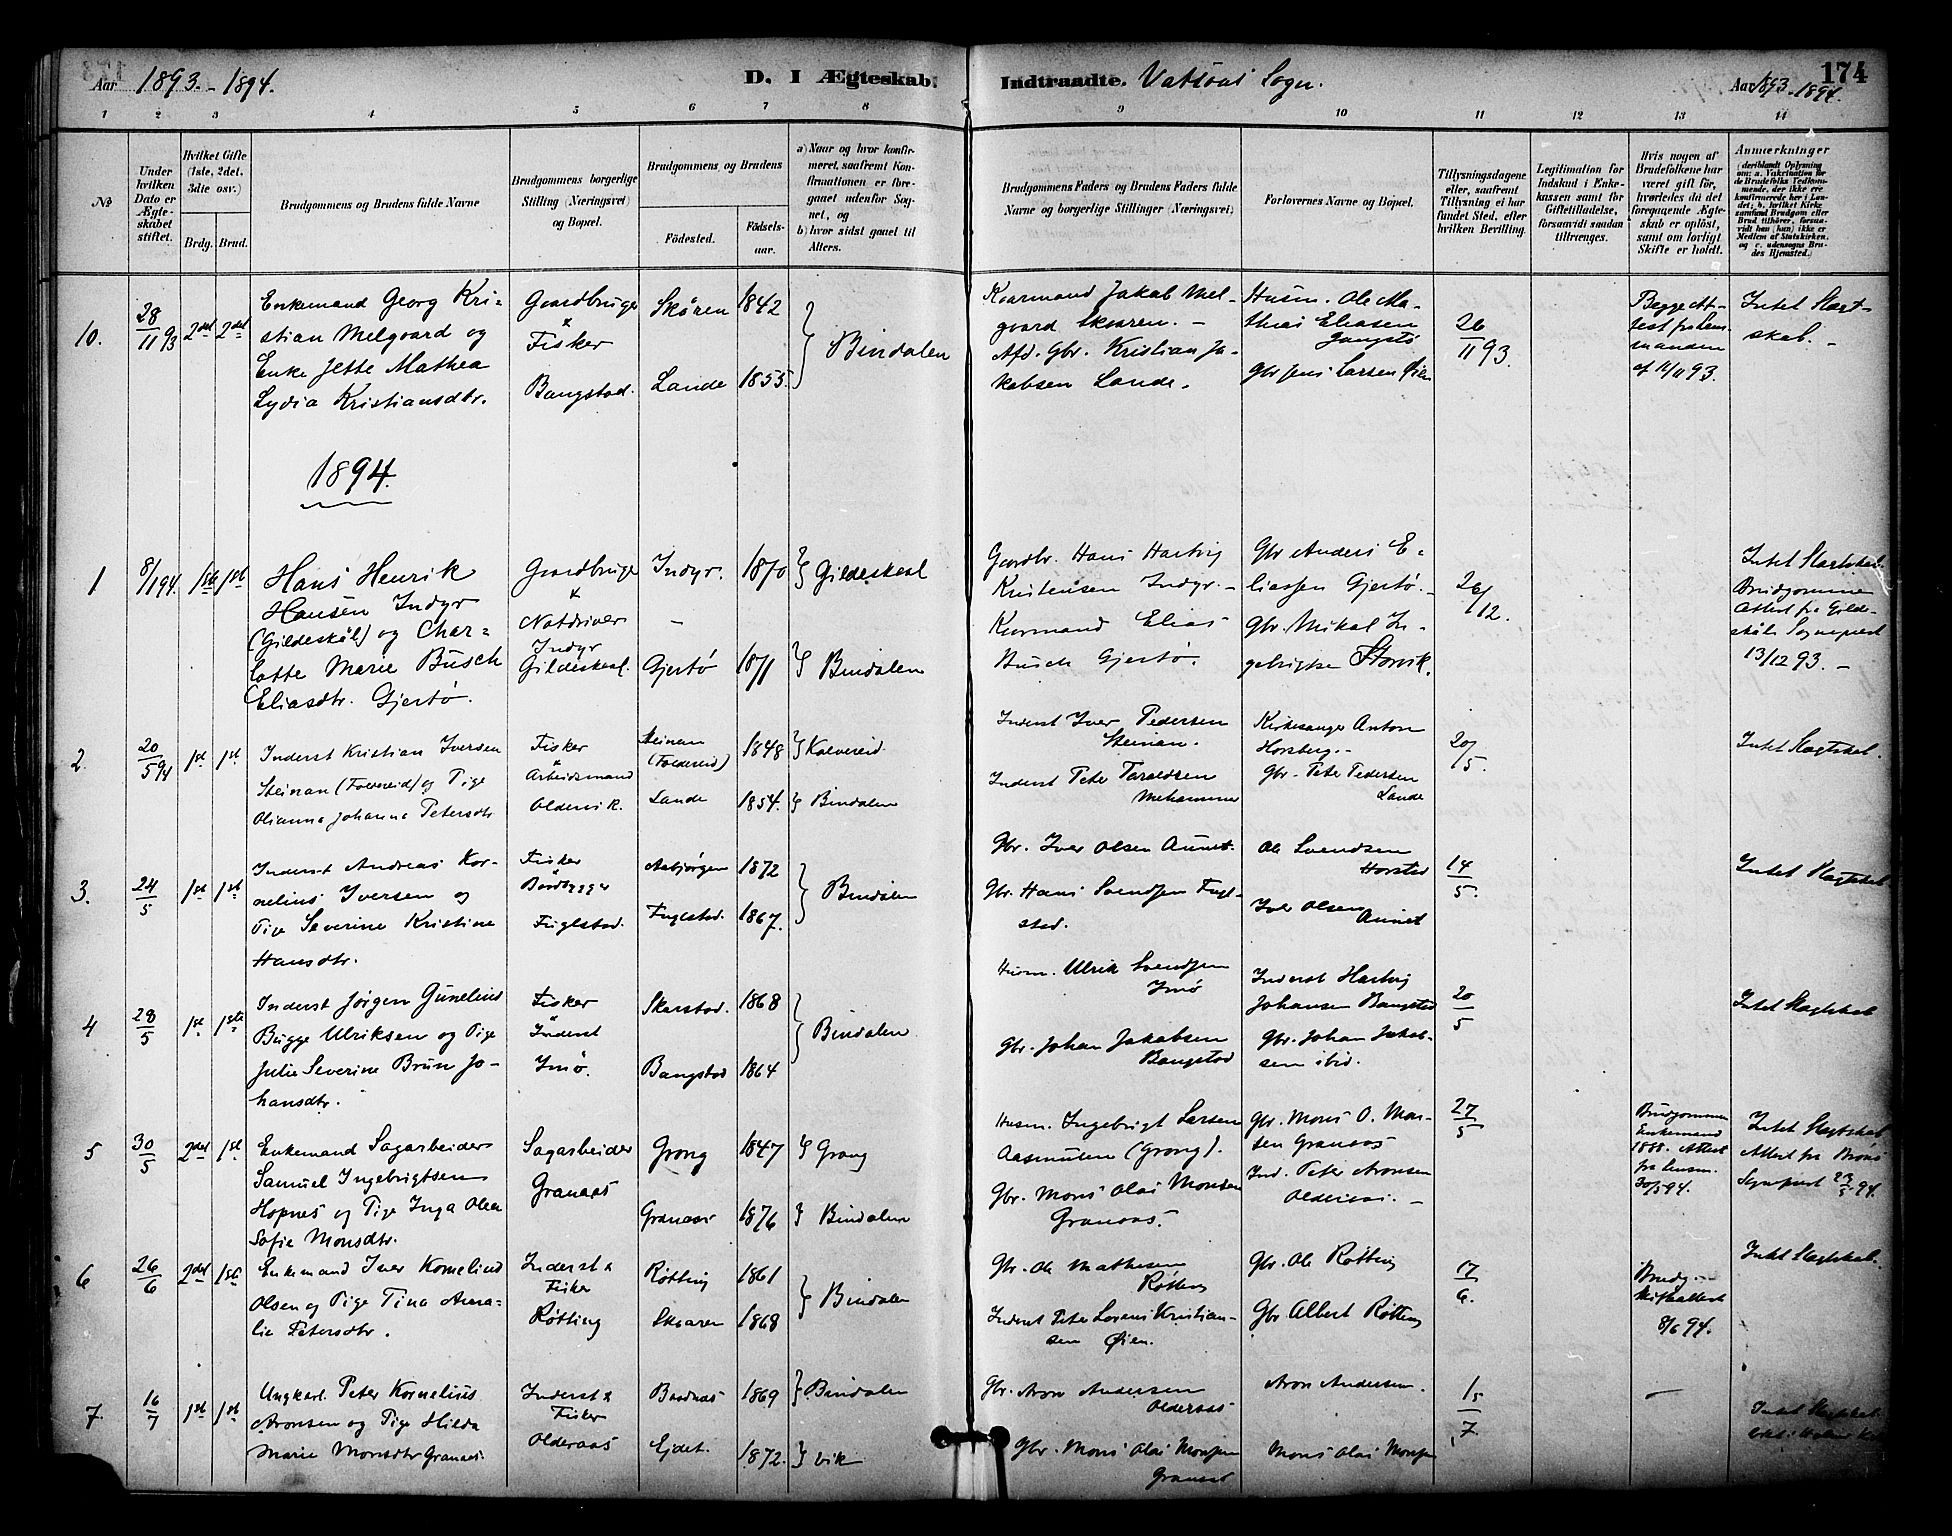 Aar 1893.-1894.
D. I Ægteskab
Indtraadte. Vatsöas Sogn.
Aar 1893-1894.
174
1 2 3 4 5 6 7 8 9 10 11 12 13 14
No
Under hvilken Dato er Ægteskabet stiftet.
Hvilket Gifte (1ste, 2det, 3die osv.)
Brdg. Brud.
Brudgommens og Brudens fulde Navne
Brudgommens borgerlige Stilling (Næringsvei) og Bopæl.
Brudgommens og Brudens
Fødested.
Fødselsaar.
a) Naar og hvor konfirmeret, saafremt Konfirmationen er foregaaet udenfor Sognet, og
b) hvor sidst gaaet til Alters.
Brudgommens Faders og Brudens Faders fulde Navne og borgerlige Stillinger (Næringsvei)
Forlovernes Navne og Bopæl.
Tillysningsdagene eller, saafremt Tillysning ei har fundet Sted, efter hvilken Bevilling.
Legitimation for Indskud i Enkekassen samt for Giftetilladelse, forsaavidt saadan tiltrænges.
Hvis nogen af Brudefolkene har været gift før, hvorledes da det foregaaende Ægteskab er opløst, samt om lovligt Skifte er holdt.
Anmærkninger (deriblandt Oplysning om: a. Vakcination for de Brudefolks Vedkommende, der ikke ere konfirmerede her i Landet; b. hvilket Kirkesamfund Brudgom eller Brud tilhører, forsaavidt han (hun) ikke er Medlem af Statskirken, og c. udensogns Brudes Hjemsted.)
10. 28/11 93 2det 2det
Enkemand Georg Kri=
stian Melgaard og
Enke Jette Mathea
Lydia Kristiansdtr.
Gaardbruger
&
Fisker
Bangstad.
Skåren 1842
Lande 1855.
Bindalen
Kaarmand Jakob Mel-
gaard Skaaren. -
Afd. Gbr. Kristian Ja-
kobsen Lande.
Husm. Ole Ma-
thias Eliasen
Gbr Jens Larsen Øien
26/11 93.
Begge At-
test fra Lens
manden
af 14/11 93.
Intet Slægt-
skab. -
1894.
1 8/1 94. 1ste 1ste
Hans Henrik
Hansen Indyr
(Gildeskål) og Char=
lotte Marie Busch
Eliasdtr. Gjertö.
Gaardbruger
&
Notdriver
Indyr
Gildeskaal.
Indyr. 1870
-
Gjertö 1871
Gildeskaal
Bindalen
Gaardbr. Hans Hartvig
Kristensen Indyr. -
Kaarmand Elias
Busch Gjertö.
Gbr Anders E=
liassen Gjertö. -
Gbr. Mikal In-
gebrigtsen Storvik.
26/12.
Intet Slægtskab
Brudgommens
Attest fra Gilde-
skåls Sognepræst
13/12 93. -
2. 20/5 94 1st 1st
Inderst Kristian Iversen
Steinan (Foldereid) og Pige
Olianna Johanna Petersdtr
Fisker
&
Arbeidsmand
Oldervik.
Steinan
(Foldereid) 1848
Lande 1854.
Kolvereid
Bindalen
Inderst Iver Pedersen
Steinan.
Inderst Peter Taraldsen
Mehammer
Kirkesanger Anton
Horsberg. -
Gbr. Peter Pedersen
Lande
20/5.
Intet Slægtskab.
3. 24/5 1st 1st
Inderst Andreas Kor-
nelius Iversen og
Pige Severine Kristine
Hansdtr.
Fisker
&
Baadbygger
Fuglstad.
Aabjørgen 1872
Fuglstad. 1867.
Bindalen
Gbr. Iver Olsen Aunet
Gbr. Hans Svendsen Fugl-
stad.
Ole Svendsen
Horsted
Iver Olsen
Aunet
14/5.
Intet Slægtskab
4 28/5 1st 1ste
Inderst Jørgen Gunelius
Bugge Ulriksen og Pige
Julie Severine Brun Jo-
hansdtr.
Fisker
&
Inderst
Imö.
Skarstad. 1868
Bangstad 1864
Bindalen
Husm. Ulrik Svendsen
Imö
Gbr. Johan Jakobsen
Bangstad
Inderst Hartvig
Johansen Bangstad
Gbr. Johan Jakob-
sen ibid.
20/5
Intet Slægtskab
5 30/5 2det 1st
Enkemand Sagarbeider
Samuel Ingebrigtsen
Hopnes og Pige Inga Olea
Sofie Monsdtr.
Sagarbeider
Granaas
Grong 1847
Granaas 1876
Grong
Bindalen
Husm. Ingebrigt Larsen
Aasmulen (Grong).
Gbr. Mons Olai Monsen
Granaas.
Gbr. Mons O. Mon-
sen Granaas
Ind. Peter Aronsen
Olderaas. -
27/5
Brudgommen
Enkemand
1888. Attest
fra Lensm.
30/5 94.
Intet Slægtskab
Attest fra
Sognepræst 94.
6 26/6 2det 1ste
Enkemand Iver Kornelius
Olsen og Pige Tina Ama-
lie Petersdtr.
Inderst &
Fisker
Røtting
Røtting 1861
Skaaren 1868
Bindalen
Gbr. Ole Mathesen
Røtting
Inderst Peter Lorens Kristian-
sen Øien.
Gbr. Ole Røtting
Gbr Albert Røtting
17/6.
Brudg.
Skifteattest
8/6 94.
Intet Slægtskab.
7. 16/7 1st 1st
Ungkarl. Peter Kornelius
Aronsen og Pige Hilda
Marie Monsdtr Granaas.
Inderst &
Fisker
Olderaas
Baadnes 1869
Ejdet. 1872.
Bindalen
Vik
Gbr. Aron Andersen
Olderaas
Gbr. Mons Olai Monsen
Granaas
Aron Andersen.
Mons Olai Monsen
15/7
-
Intet Slægtskab